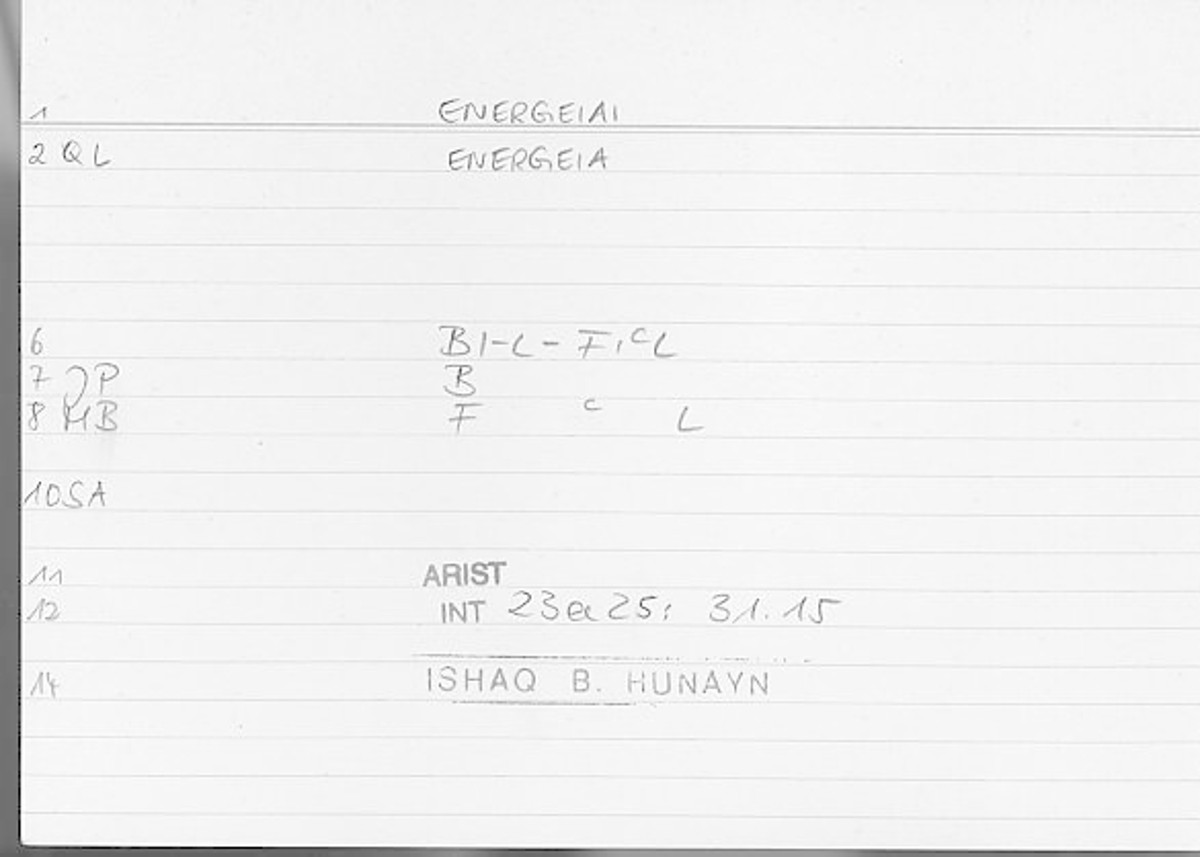 1 ENERGEIAI
2 QL ENERGEIA
6 BI-L-FIᶜL
7 JP B
8 MB F ᶜ L
10 SA
11 ARIST
12 INT 23a25; 31.15
14 ISHAQ B. HUNAYN